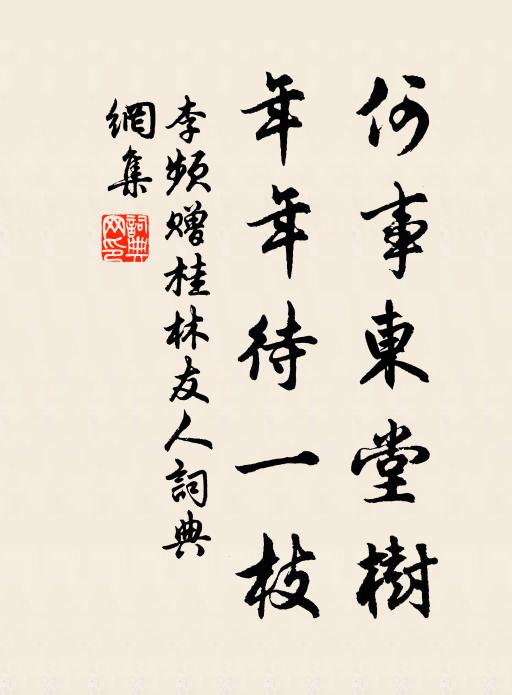 何事東堂樹
年年待一枝
李頻贈桂林友人詞典
網集
詞典
网印